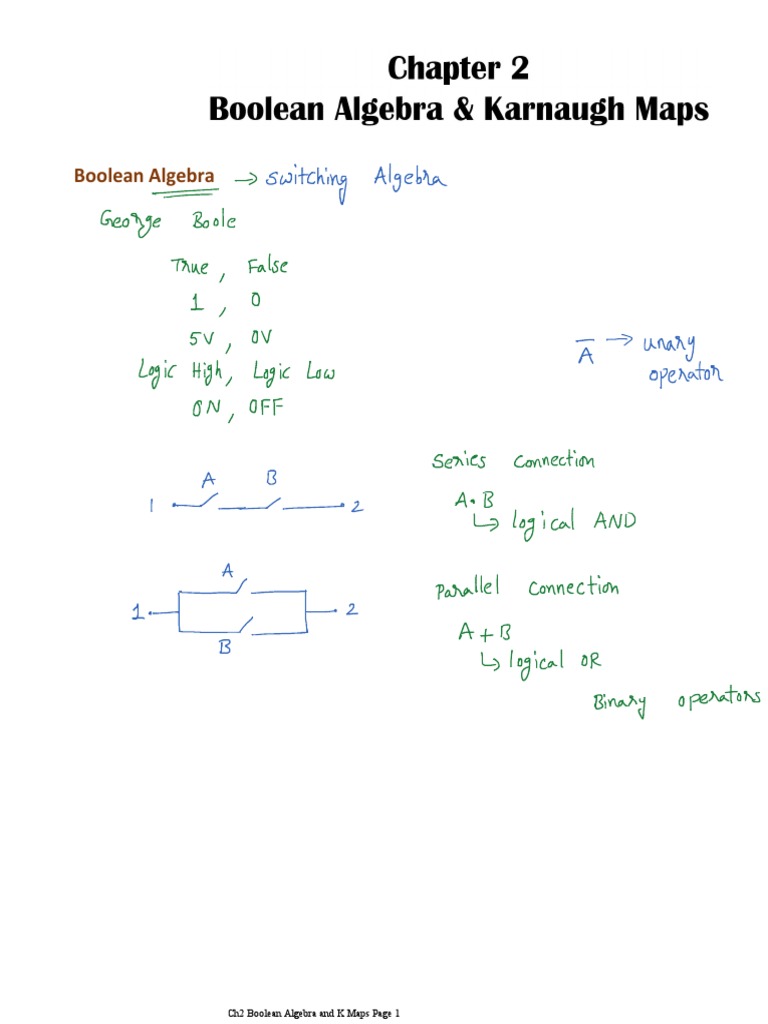 Chapter 2
Boolean Algebra & Karnaugh Maps
Boolean Algebra → Switching Algebra
George Boole
True, False
1, 0
5V, 0V
Logic High, Logic Low
ON, OFF
A̅ → unary
operator
A B
1 2
Series Connection
A·B
↳ logical AND
A
1 2
B
Parallel Connection
A + B
↳ logical OR
Binary operators
Ch2 Boolean Algebra and K Maps Page 1